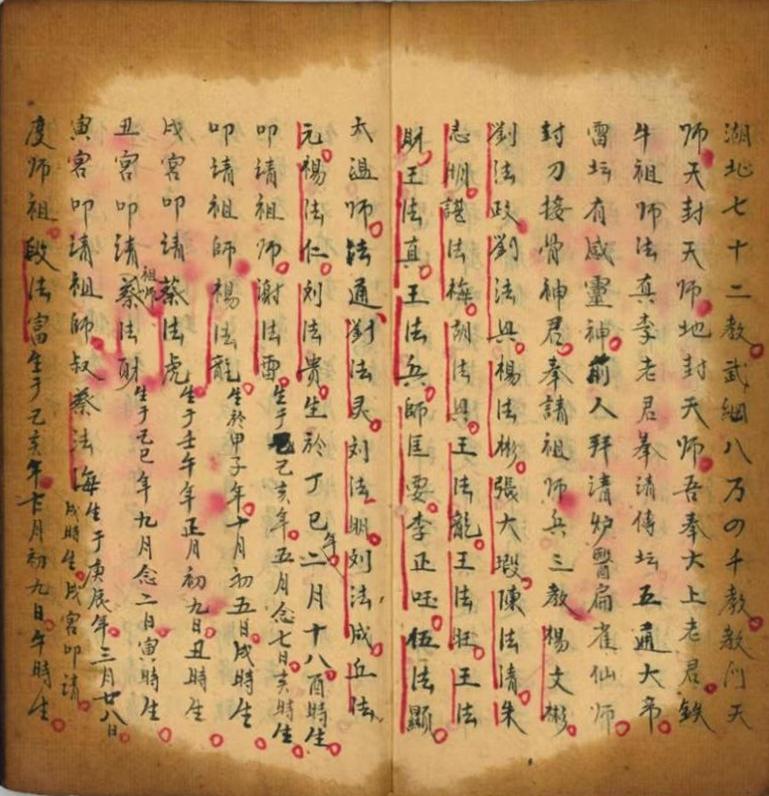 湖北七十二教武細八万の千教教门天
师天封天师地封天师吾奉大上老君鉄
牛祖师法真李老君奉請傳坛五通大帝
雷坛有威靈神前人拜清炉醫扁雀仙师
封刀接骨神君奉請祖师兵三教楊文彬
劉法政劉法兴楊法彬張大瑕陳法清朱
志明諶法梅胡法兴王法龍王法旺王法
王法真王法兵師匡要李正伍法顯
太温师法通對法灵刘法明刘法成丘法
元楊法仁刘法貴生於丁巳年二月十八酉時生
叩請祖师謝法雷生于己亥年五月念七日亥時生
叩請祖師楊法龍生於甲子年十月初五日戌時生
戌宮叩請蔡法虎生于壬午年正月初九日丑時生
丑宮叩請祖师蔡法財生于己巳年九月念二日寅時生
寅宮叩請祖師叔蔡法海生于庚辰年三月廿八日戌時生戌宮叩請
度师祖段法富生于己亥年十月初九日午時生